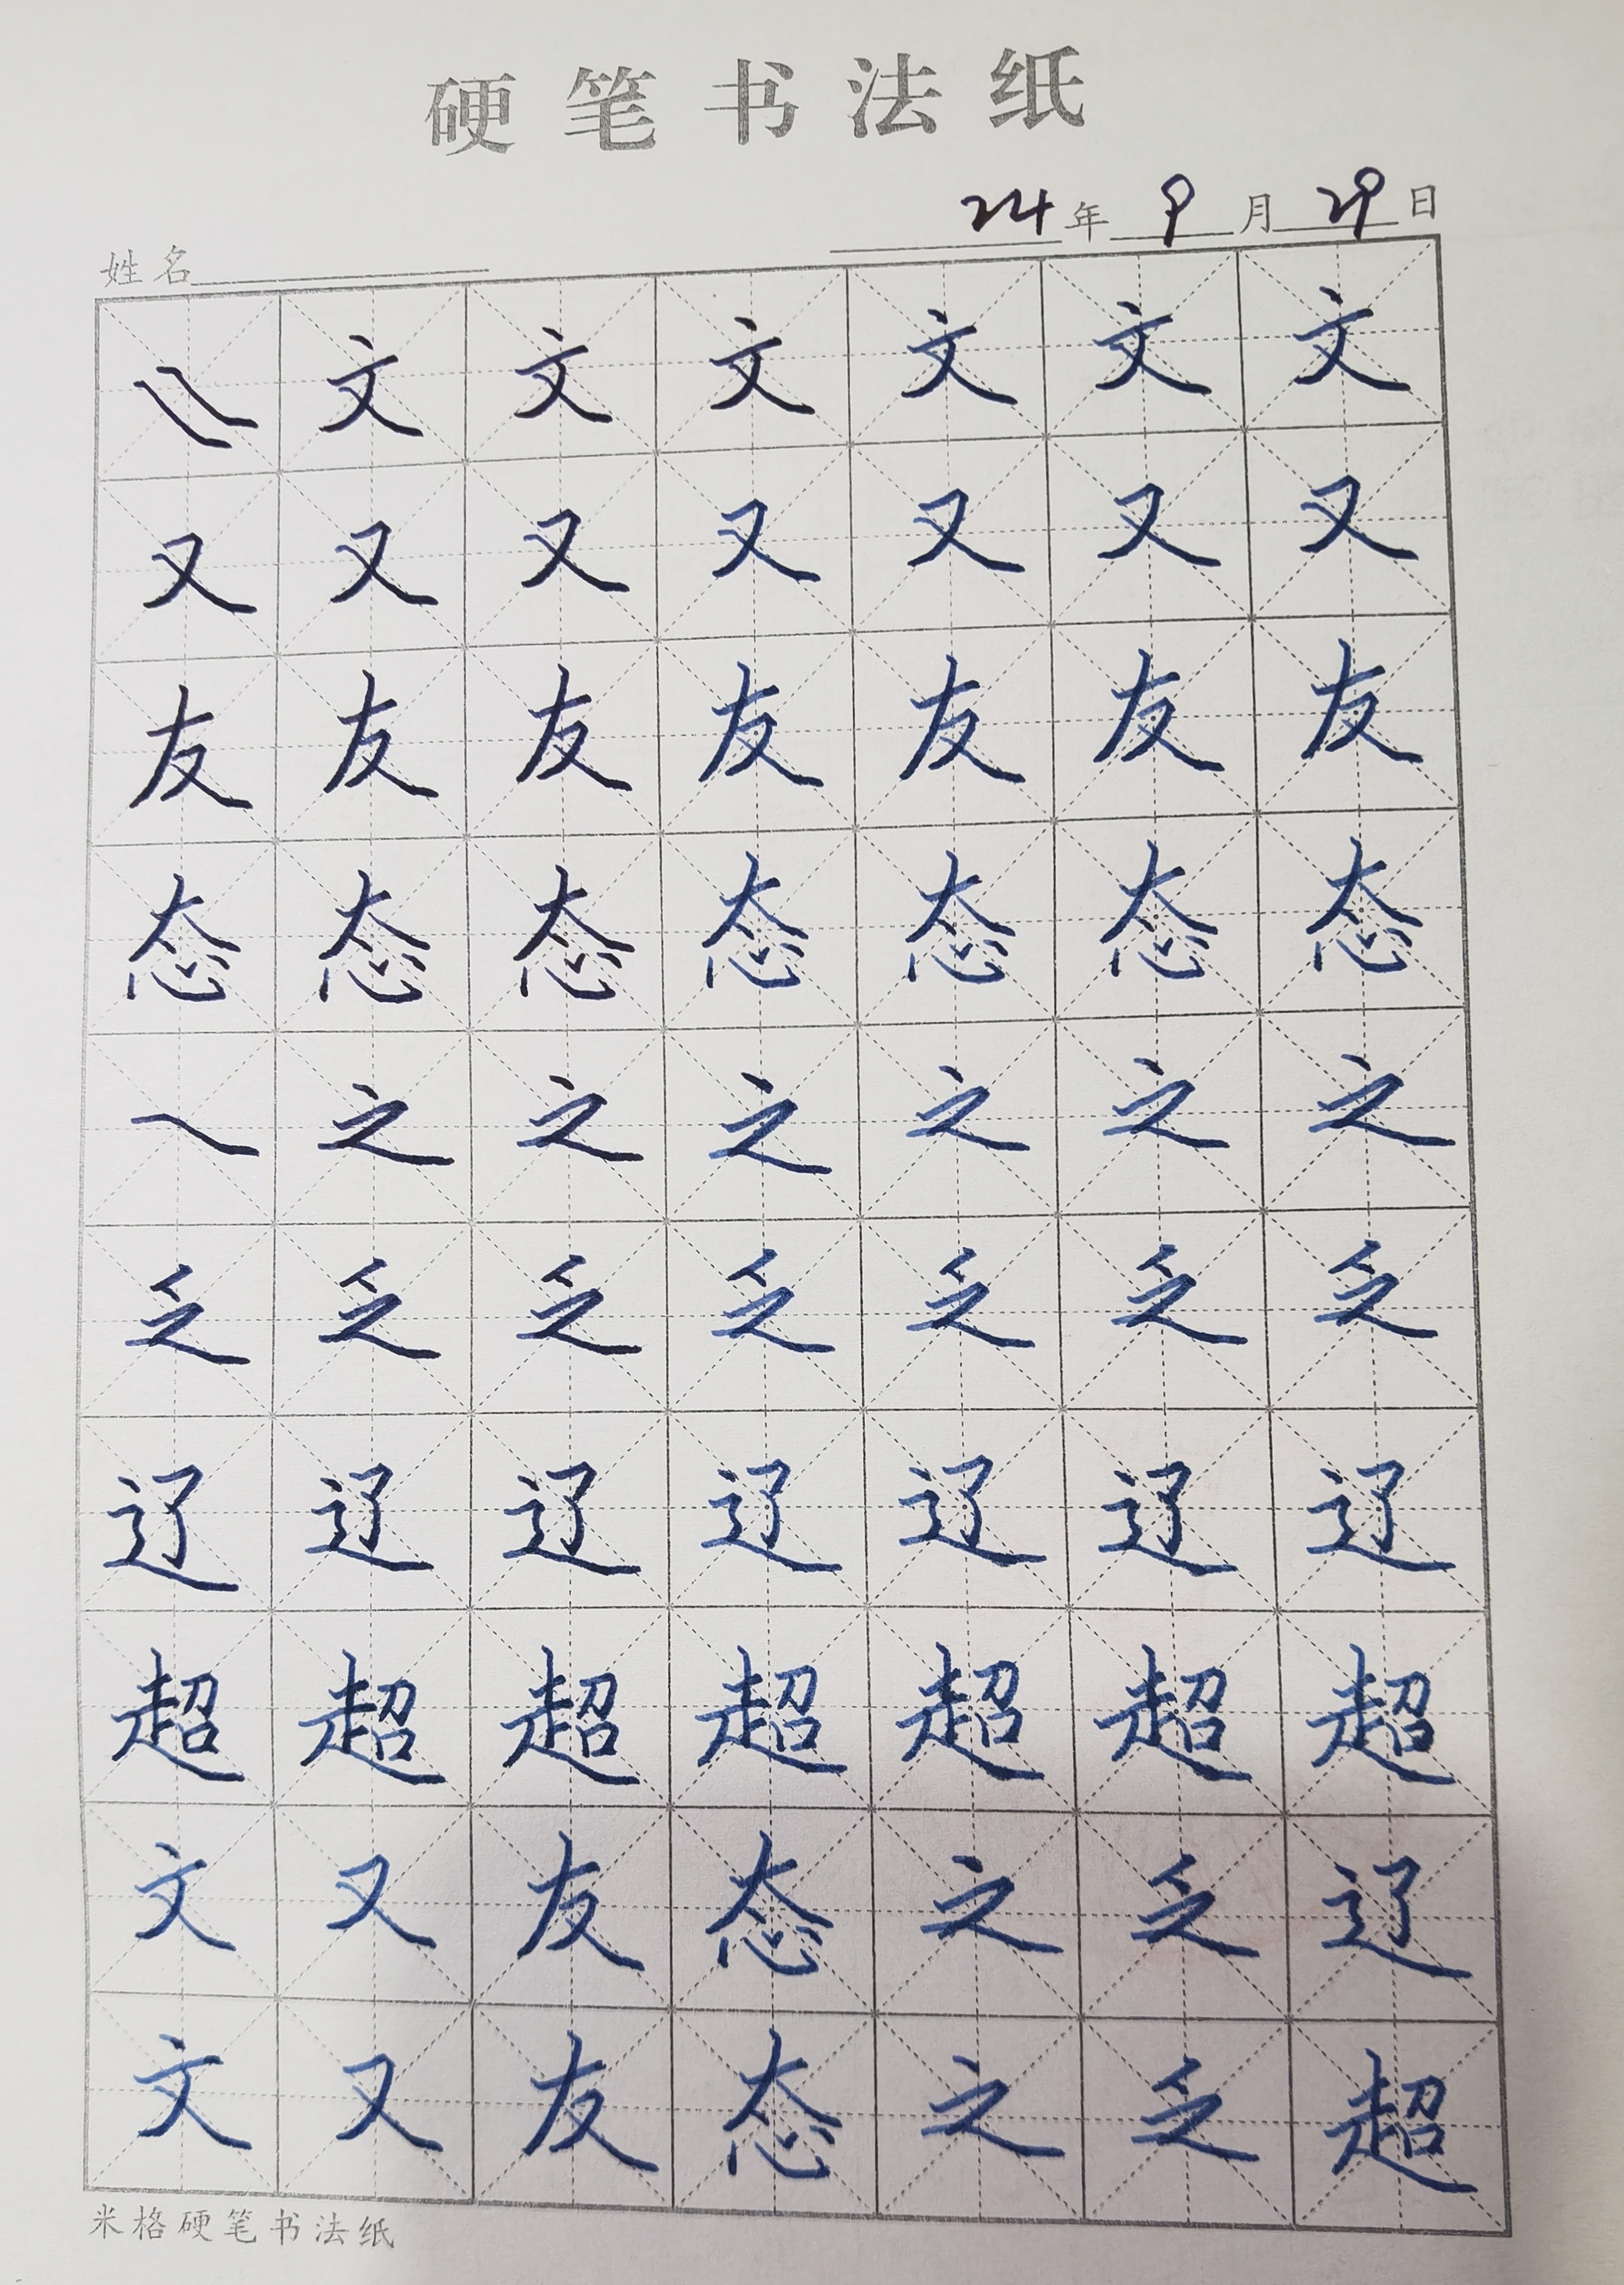 硬笔书法纸
24年9月29日
姓名
㇏㇏文文文文文文
又又又又又又又
友友友友友友友
态态态态态态态
㇏之之之之之之
乏乏乏乏乏乏乏
辽辽辽辽辽辽辽
超超超超超超超
文又友态之乏辽
文又友态之乏超
米格硬笔书法纸